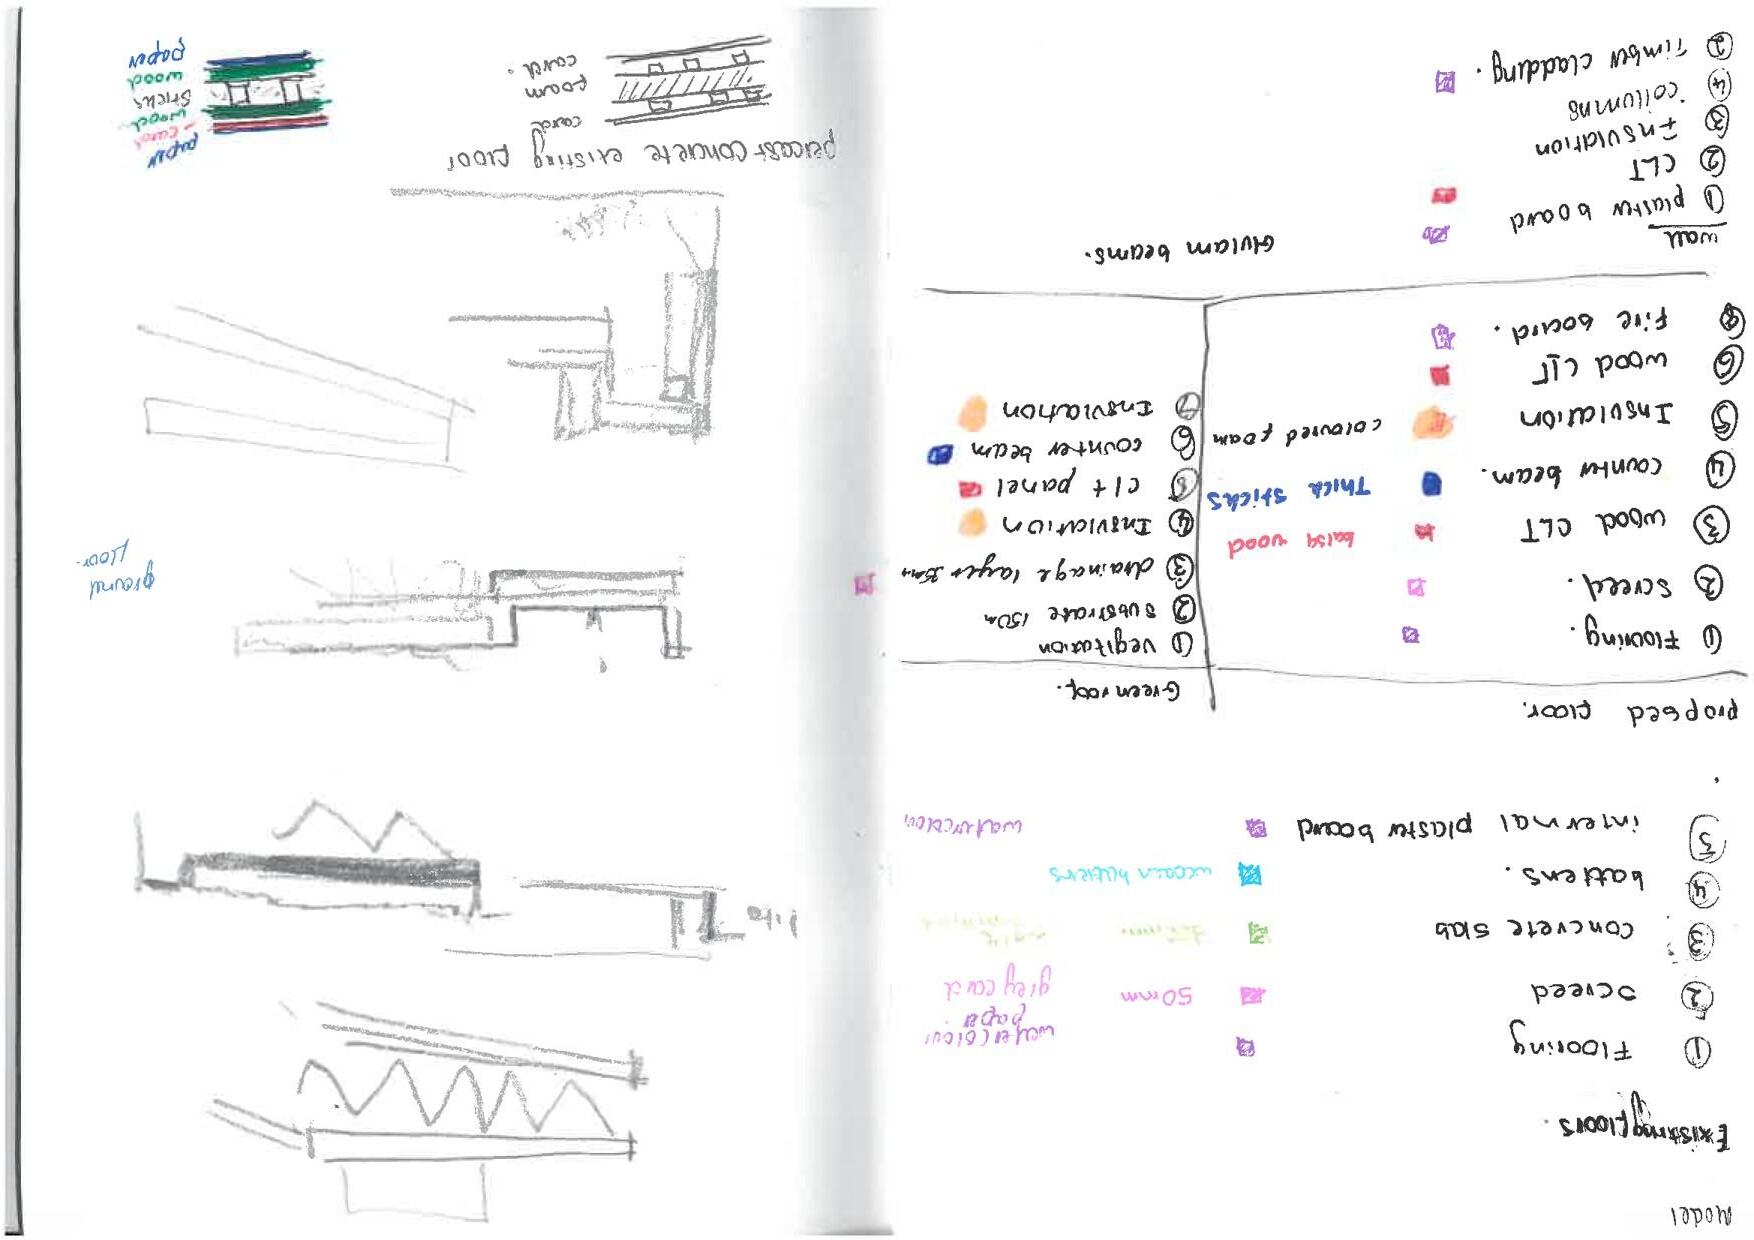 Model
Existing floors.
① Flooring watercolour paper
② Screed 50mm grey card
③ concrete slab
④ battens. wooden battens
⑤ internal plaster board watercolour
propsed floor.
① Flooring.
② Screed.
③ wood CLT balsa wood
④ counter beam. Thick sticks
⑤ Insulation coloured foam
⑥ wood CLT
Fire board.
Green roof.
① vegitation
② substrate 150m
③ drainage layer 35mm
④ Insulation
⑤ clt panel
⑥ counter beam
⑦ Insulation
wall
① plaster board
② CLT
③ Insulation
④ collumns
Timber cladding.
Glulam beams.
ground
floor.
percast concrete existing floor
card
foam
card.
paper
card
wood
sticks
wood
paper